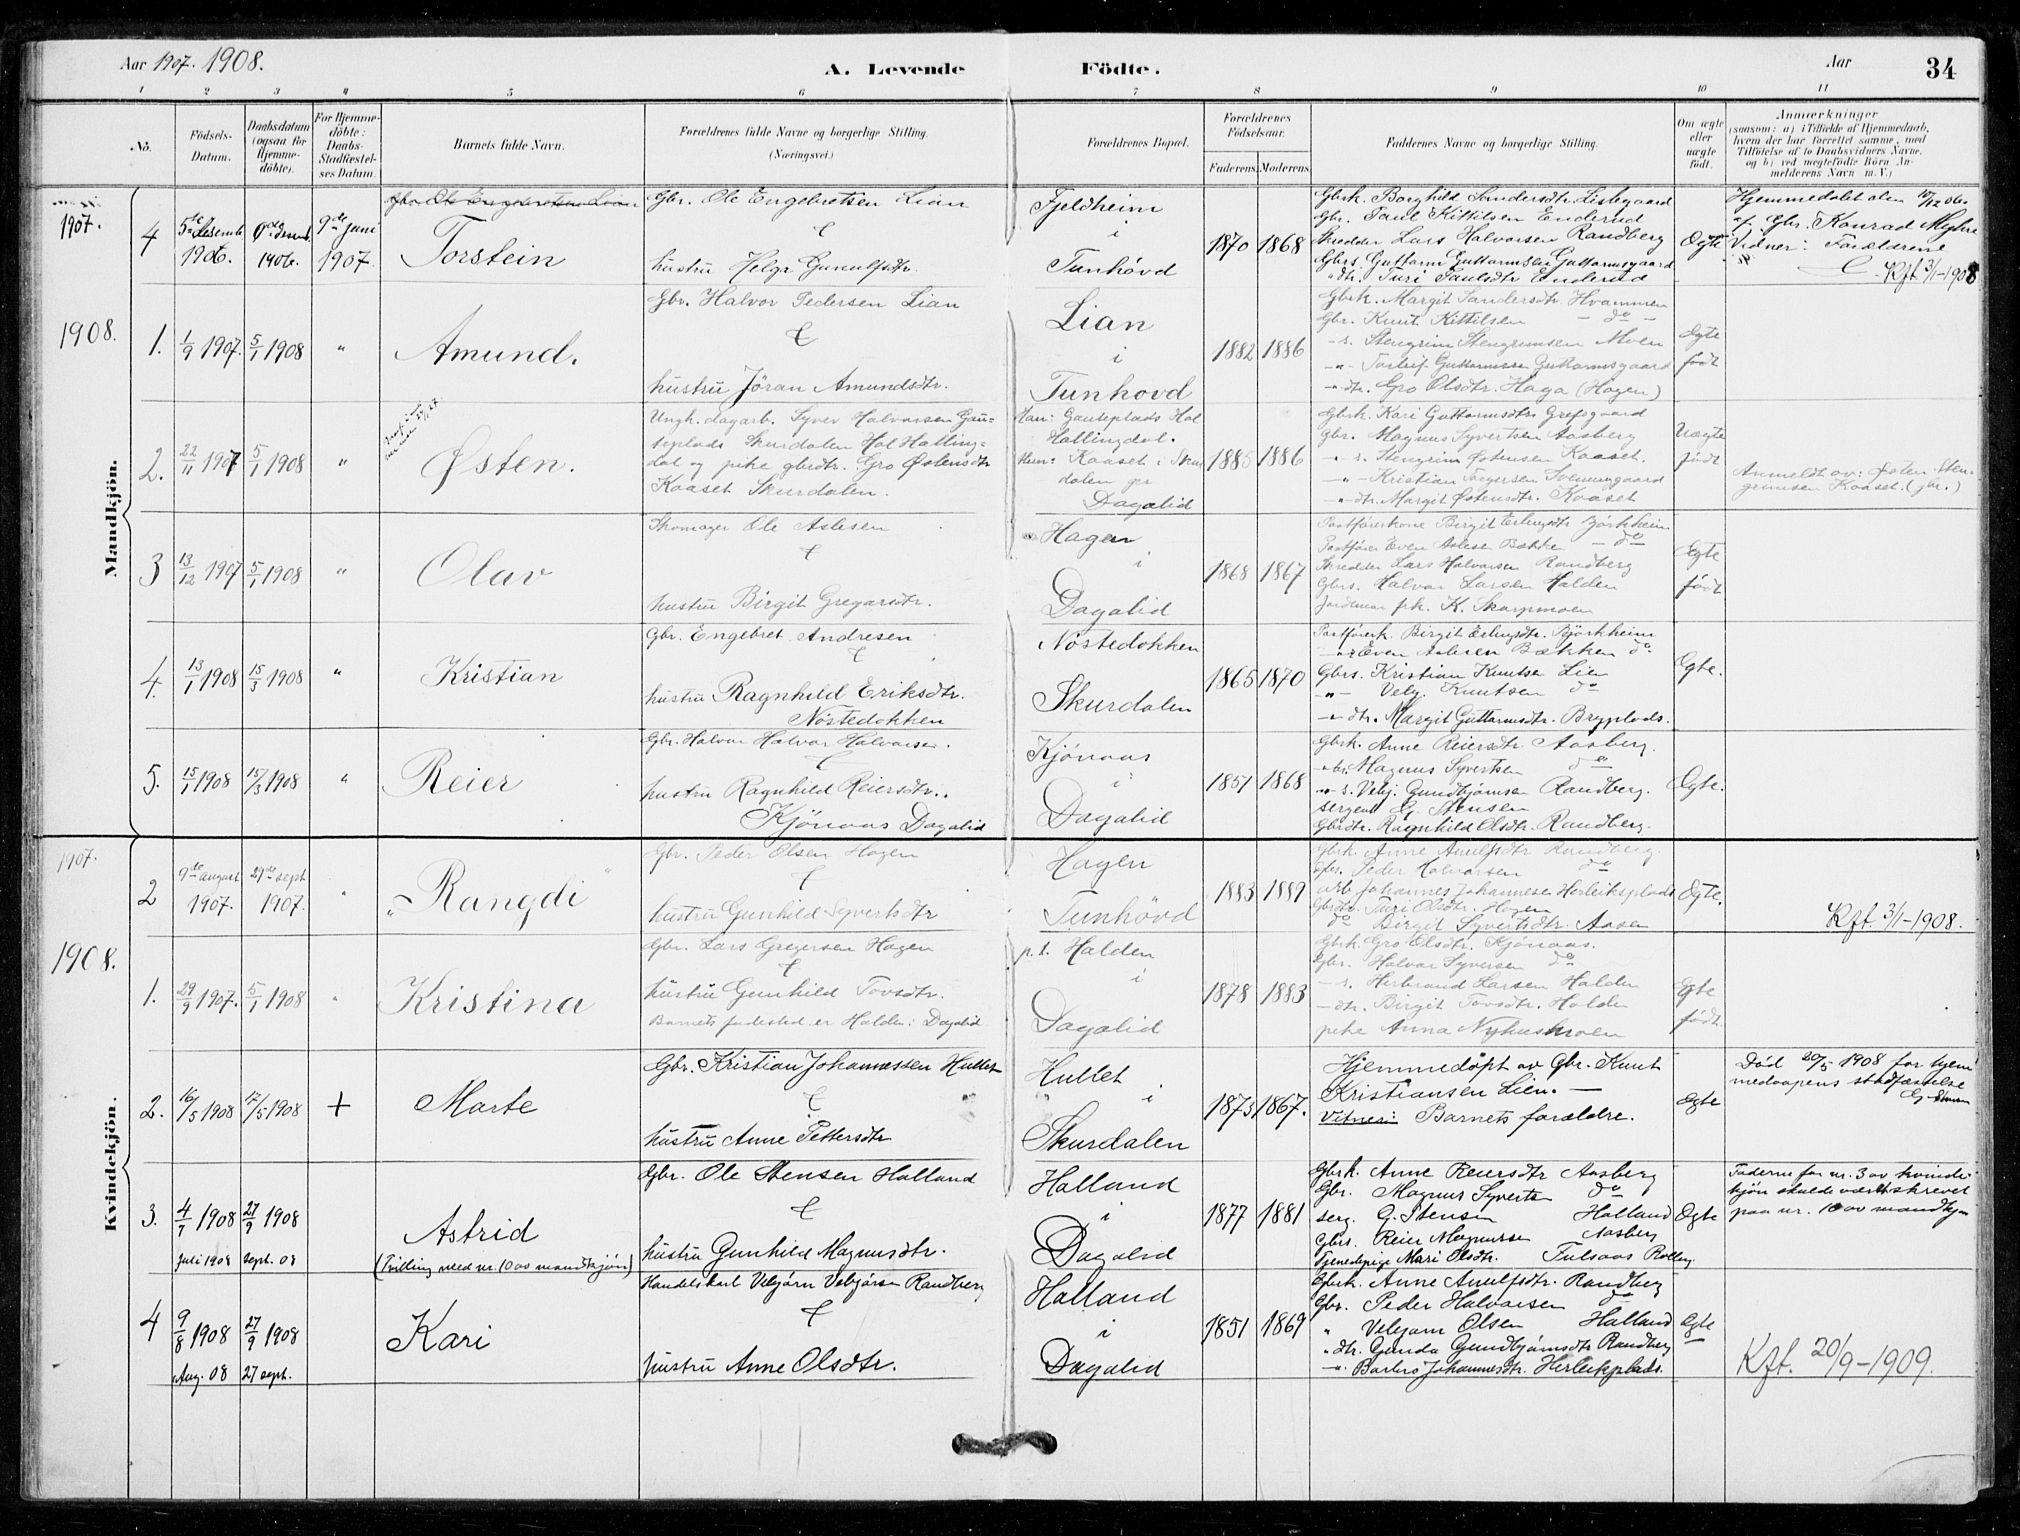 Aar 1907. 1908.
A. Levende Födte.
Aar
34
1 2 3 4 5 6 7 8 9 10 11
No.
Födsels-
Datum.
Daabsdatum
(ogsaa for
Hjemme-
döbte).
For Hjemme-
döbte:
Daabs-
Stadfæstel-
ses Datum.
Barnets fulde Navn.
Forældrenes fulde Navne og borgerlige Stilling.
(Næringsvei.)
Forældrenes Bopæl.
Forældrenes
Fødselsaar.
Faderens Moderens
Faddernes Navne og borgerlige Stilling.
Om ægte
eller
uægte
født.
Anmærkninger
(saasom: a) i Tilfælde af Hjemmedaab,
hvem der har forrettet samme, med
Tilföielse af to Daabsvidners Navne,
og b) ved uegtefödte Börn An-
melderens Navn m. V.)
Mandkjön.
1907.
4
5te desemb.
1906.
1906.
9de juni
1907.
Gbr. Ole Engebretsen Lian
Torstein
Gbr. Ole Engebretsen Lian
&
hustru Helga Gunulfsdtr.
Fjeldheim
i
Tunhövd
1870 1868
Gbrk. Borghild Sandersdtr. Lislegaard
Gbr. Paul Kittilsen Enderud
Skredder Lars Halvorsen Randberg
Gbrs. Guttorm Guttormsen Guttormsgaard
" dtr. Turi Paulsdtr. Enderud
Ægte
Hjemmedøbt den
af Gbr. Konrad Myhre
Vidner: Forældrene
Kft. 3/1-1908
1908.
1.
1/9 1907.
5/1 1908
"
Amund.
Gbr. Halvor Pedersen Lian
&
hustru Jöran Amundsdtr.
Lian
i
Tunhovd
1882 1886
Gbrk. Margit Sandersdtr. Hvammen
Gbr. Knut Kittilsen - do -
- s. Stengrim Stengrimsen Moen
- " - Torleif Guttormsen Guttormsgaard
- " dtr. Gro Olsdtr. Haga (Hagen)
Ægte
født
2.
22/11 1907
5/1 1908
"
Østen.
Ungk. dagarb. Syver Halvorsen Gau-
teplads Skurdalen Hol Halling-
dal og pike gbrdtr. Gro Østensdtr.
Kaaset Skurdalen.
Han: Gauteplads Hol
Hallingdal.
Hun: Kaaset i Skur
dalen pr
Dagalid
1885 1886
Gbrk. Kari Guttormsdtr. Grefsgaard
Gbr. Magnus Syvertsen Aasberg
- " s. Stengrim Østensen Kaaset.
- " - Kristian Torgersen Svennungaard
- " dtr. Margit Østensdtr. Kaaset
Uægte
født
Anmeldt av: Østen Sten-
grimsen Kaaset. (gbr.)
3
13/12 1907
5/1 1908
"
Olav
Skomager Ole Aslesen
&
hustru Birgit Gregarsdtr.
Hagen
i
Dagalid
1868 1867
Postførerkone Birgit Erlingsdtr. Björkheim
Postfører Even Aslesen Bække - do
Skredder Lars Halvorsen Randberg
Gbrs. Halvor Larsen Halden
Jordemor frk. K. Skarpmoen
Ægte
født
4.
13/1 1908
15/3 1908
"
Kristian
Gbr. Engebret Andresen
&
hustru Ragnhild Eriksdtr.
Nöstedokken
Nöstedokken
Skurdalen
1865 1870
Postførerk. Birgit Erlingsdtr. Björkheim
Even Aslesen Bækken do
Gbrs. Kristian Knutsen Lien
- " - Velg. Knutsen do
- " dtr. Margit Guttormsdtr. Bryplads.
Ægte.
5.
15/1 1908
15/3 1908
"
Reier
Gbr. Halvor Halvor Halvorsen.
&
hustru Ragnhild Reiersdtr.
Kjönaas Dagalid
Kjönaas
i
Dagalid
1851 1868
Gbrk. Anne Reiersdtr. Aasberg.
" br. Magnus Syvertsen do
" s. Vebj. Gundbjörnsen Randberg.
sergent G. Stensen
Gbrdtr. Ragnhild Olsdtr. Randberg.
Ægte.
Kvindekjön.
1907.
2
9de august
1907.
29de sept
1907.
"
"Rangdi"
Gbr. Peder Olsen Hagen
&
hustru Gunhild Syvertsdtr
Hagen
i
Tunhövd
1883 1889
Gbrk. Anne Anulfsdtr Randberg.
Gbr. Peder Halvorsen do
Arb. Johannes Johannesen Herleiksplads
Gbrdtr. Turi Olsdtr. Hagen
do Birgit Syvertsdtr. Aasen
Ægte.
Kft. 3/1-1908.
1908.
1.
29/9 1907.
5/1 1908
"
Kristina
Gbr. Lars Gregersen Hagen
&
hustru Gunhild Tovsdtr.
Barnets fødested er Halden: Dagalid
p.t. Halden
i
Dagalid
1878 1883
Gbrk. Gro Olsdtr. Kjönaas.
Gbr. Halvor Syversen do
- s. Herbrand Larsen Halden
- dtr. Birgit Tovsdtr. Halden
pike Anna Nyhusmoen
Ægte
født.
2.
16/5 1908
17/5 1908
+
Marte
Gbr. Kristian Johannessen Hullet
&
hustru Anne Pettersdtr
Hullet
i
Skurdalen
1873 1867.
Hjemmedöpt av Gbr. Knut
Kristiansen Lien. —
Vitneri: Barnets forældre.
Ægte
Død 20/5 1908 før hjem
medaapens stadfæstelse
3.
4/7 1908
Juli 1908
27/9 1908
Sept. 08
Astrid
(Tvilling med nr. 10 av mandkjön)
Gbr. Ole Stensen Halland
&
hustru Gunhild Magnusdtr.
Halland
i
Dagalid
1877 1881
Gbrk. Anne Reiersdtr Aasberg
Gbr. Magnus Syverts do
serg. G. Stensen Halland
Gbrs. Reier Magnussen Aasberg
Tjenestepige Mari Olsdtr. Tufsaas
Ægte
Faderne for nr. 3 av kvinde
kjön skulde vært skrevet
paa nr. 10 av mandkjön
4
9/8 1908
Aug. 08
27/9 1908
27 sept.
Kari
Handelskarl Vebjörn Vebjörsen Randberg
&
hustru Anne Olsdtr.
Halland
i
Dagalid
1851 1869
Gbrk. Anne Anulfsdtr. Randberg
Gbr. Peder Halvorsen do
" Vebjørn Olsen Halland
" dtr. Gunda Gundbjörnsdtr Randberg
- " Barbro Johannesdtr. Herleikplads.
Ægte
Kft. 20/9-1909.